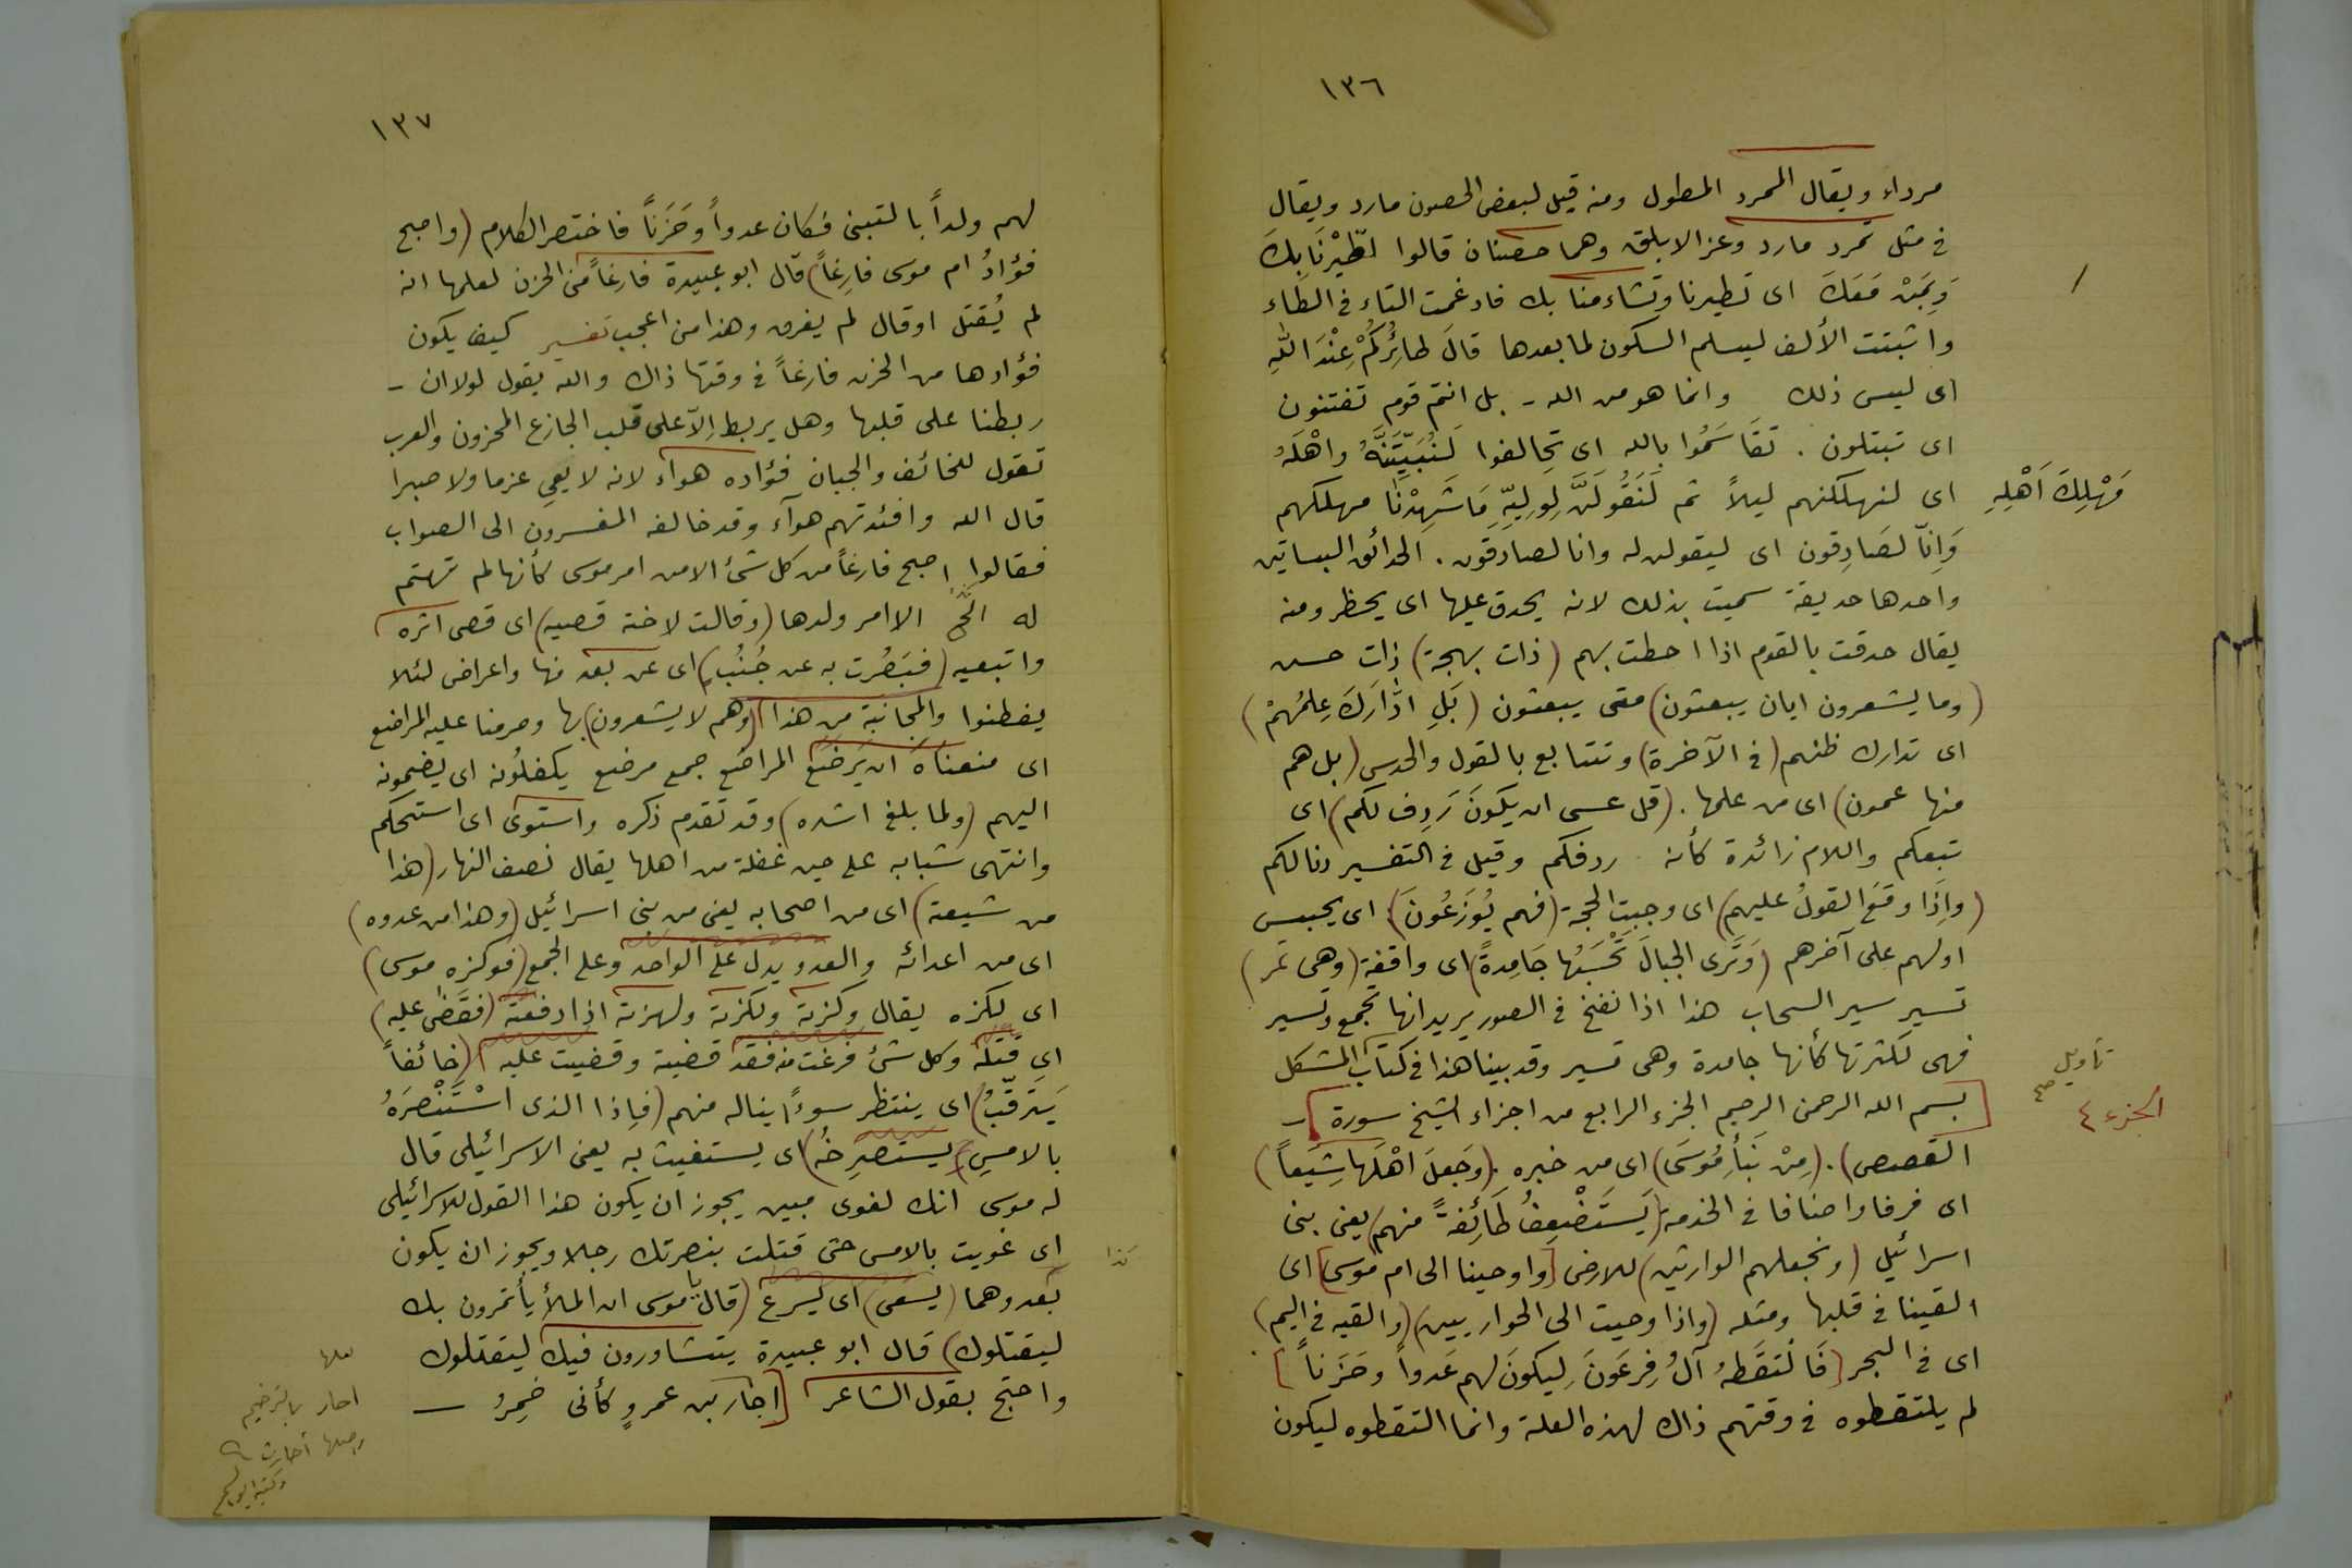 ١٣٦
مرداء ويقال الممرد المطول ومنه قيل لبعض الحصون مارد ويقال
في مثل تمرد مارد وعز الابلق وهما حصنان قالوا اطَّيَّرْنَا بِكَ
وَبِمَنْ مَعَكَ اى تطيرنا وتشاءمنا بك فادغمت التاء في الطاء
واثبتت الألف ليسلم السكون لما بعدها قالَ طَائِرُكُمْ عِنْدَ اللهِ
اى ليس ذلك وانما هو من الله - بل انتم قوم تفتنون
اى تبتلون . تَقَاسَمُوا بالله اى تحالفوا لَنُبَيِّتَنَّهُ واهْلَهُ
اى لنهلكنهم ليلاً ثم لَنَقُولَنَّ لِوَلِيِّهِ مَا شَهِدْنَا مهلكهم
مَهْلِكَ اَهْلِهِ
وَاِنَّا لصَادِقون اى ليقولن له وانا لصادقون . الحدائق البساتين
واحدها حديقة سميت بذلك لانه يحدق عليها اى يحظر ومنه
يقال حدقت بالقوم اذا احطت بهم (ذات بهجة) ذات حسن
(وما يشعرون ايان يبعثون) متى يبعثون (بَلِ ادَّارَكَ عِلمُهُمْ)
اى تدارك ظنهم (في الآخرة) وتتتابع بالقول والحدس (بل هم
منها عمون) اى من علمها . (قل عسى ان يكونَ رَدِف لكم) اى
تبعكم واللام زائدة كأنه ردفكم وقيل في التفسير دنا لكم
(وَاِذَا وقَعَ القولُ عليهم) اى وجبت الحجة (فهم يُوزَعُونَ) اى يحبس
اولهم على آخرهم (وَتَرَى الجبالَ تَحْسَبُها جَامِدةً) اى واقفة (وهى تمر)
تسير سير السحاب هذا اذا نفخ في الصور يريد انها تجمع وتسير
فهى لكثرتها كأنها جامدة وهى تسير وقد بينا هذا في كتاب المشكل
تأويل
صح
[بسم الله الرحمن الرحيم الجزء الرابع من اجزاء الشيخ سورة] -
الجزء ٤
القصص) . (مِنْ نَبَأِ مُوسَى) اى من خبره . (وَجَعلَ اهْلَها شِيَعاً)
اى فرقا واصنافا في الخدمة (يَستَضْعِفُ طَائِفةً منهم) يعنى بنى
اسرائيل (ونجعلهم الوارثين) للارض [واوحينا الى ام موسى] اى
القينا في قلبها ومثله (واذ اوحيت الى الحواريين) (والقيه في اليم)
اى في البحر [فَالتَقَطهُ آلُ فِرعَونَ لِيكونَ لهم عَدواً وحَزَناً]
لم يلتقطوه في وقتهم ذاك لهذه العلة وانما التقطوه ليكون
١٣٧
لهم ولداً بالتبنى فكان عدواً وحَزَناً فاختصر الكلام (واصبح
فؤادُ ام موسى فارِغاً) قال ابو عبيدة فارغاً من الحزن لعلمها انه
لم يُقتل اوقال لم يغرق وهذا من اعجب تفسير كيف يكون
فؤادها من الحزن فارغاً في وقتها ذاك والله يقول لولا ان -
ربطنا على قلبها وهل يربط اِلاّ على قلب الجازع المحزون والعرب
تقول للخائف والجبان فؤاده هواء لانه لا يعي عزما ولا صبرا
قال الله وافئدتهم هوآء وقد خالفه المفسرون الى الصواب
فقالوا اصبح فارغاً من كل شئ الا من امر موسى كأنها لم تهتم
له الا امر ولدها (وقالت لاخته قصيه) اى قصى اثره
واتبعيه (فبَصُرت به عن جُنُب) اى عن بعد منها واعراض لئلا
يفطنوا والمجانبة من هذا (وهم لا يشعرون) بها وحرمنا عليه المراضع
اى منعناهُ ان يَرضَعَ المراضع جمع مرضع يكفلُونه اى يضمونه
اليهم (ولما بلغ اشده) وقد تقدم ذكره واستوى اى استحكم
وانتهى شبابه على حين غفلة من اهلها يقال نصف النهار (هذا
من شيعته) اى من اصحابه يعنى من بنى اسرائيل (وهذا من عدوه)
اى من اعدائه والعدو يدل على الواحد وعلى الجمع (فوكزه موسى)
اى لكزه يقال وكزته ولكزته ولهزته اذا دفعته (فقَضى عليه)
اى قَتله وكل شئ فرغت منه فقد قضيته وقضيت عليه (خائفاً
يَتَرقّبُ) اى ينتظر سوءاً يناله منهم (فاِذا الذى اسْتَنْصَرَهُ
بالامسِ يستصرِخُه) اى يستغيث به يعنى الاسرائيلى قال
له موسى انك لغوى مبين يجوز ان يكون هذا القول للاسرائيلى
اى غويت بالامس حتى قتلت بنصرتك رجلا ويجوز ان يكون
كذا
لعدوهما (يسعى) اى يُسرع (قال يا موسى ان الملأ يأتمرون بك
ليقتلوك) قال ابو عبيدة يتشاورون فيك ليقتلوك
واحتج بقول الشاعر [اجار بن عمروٍ كأنى خَمِرُ —
لعلها
احار بالترخيم